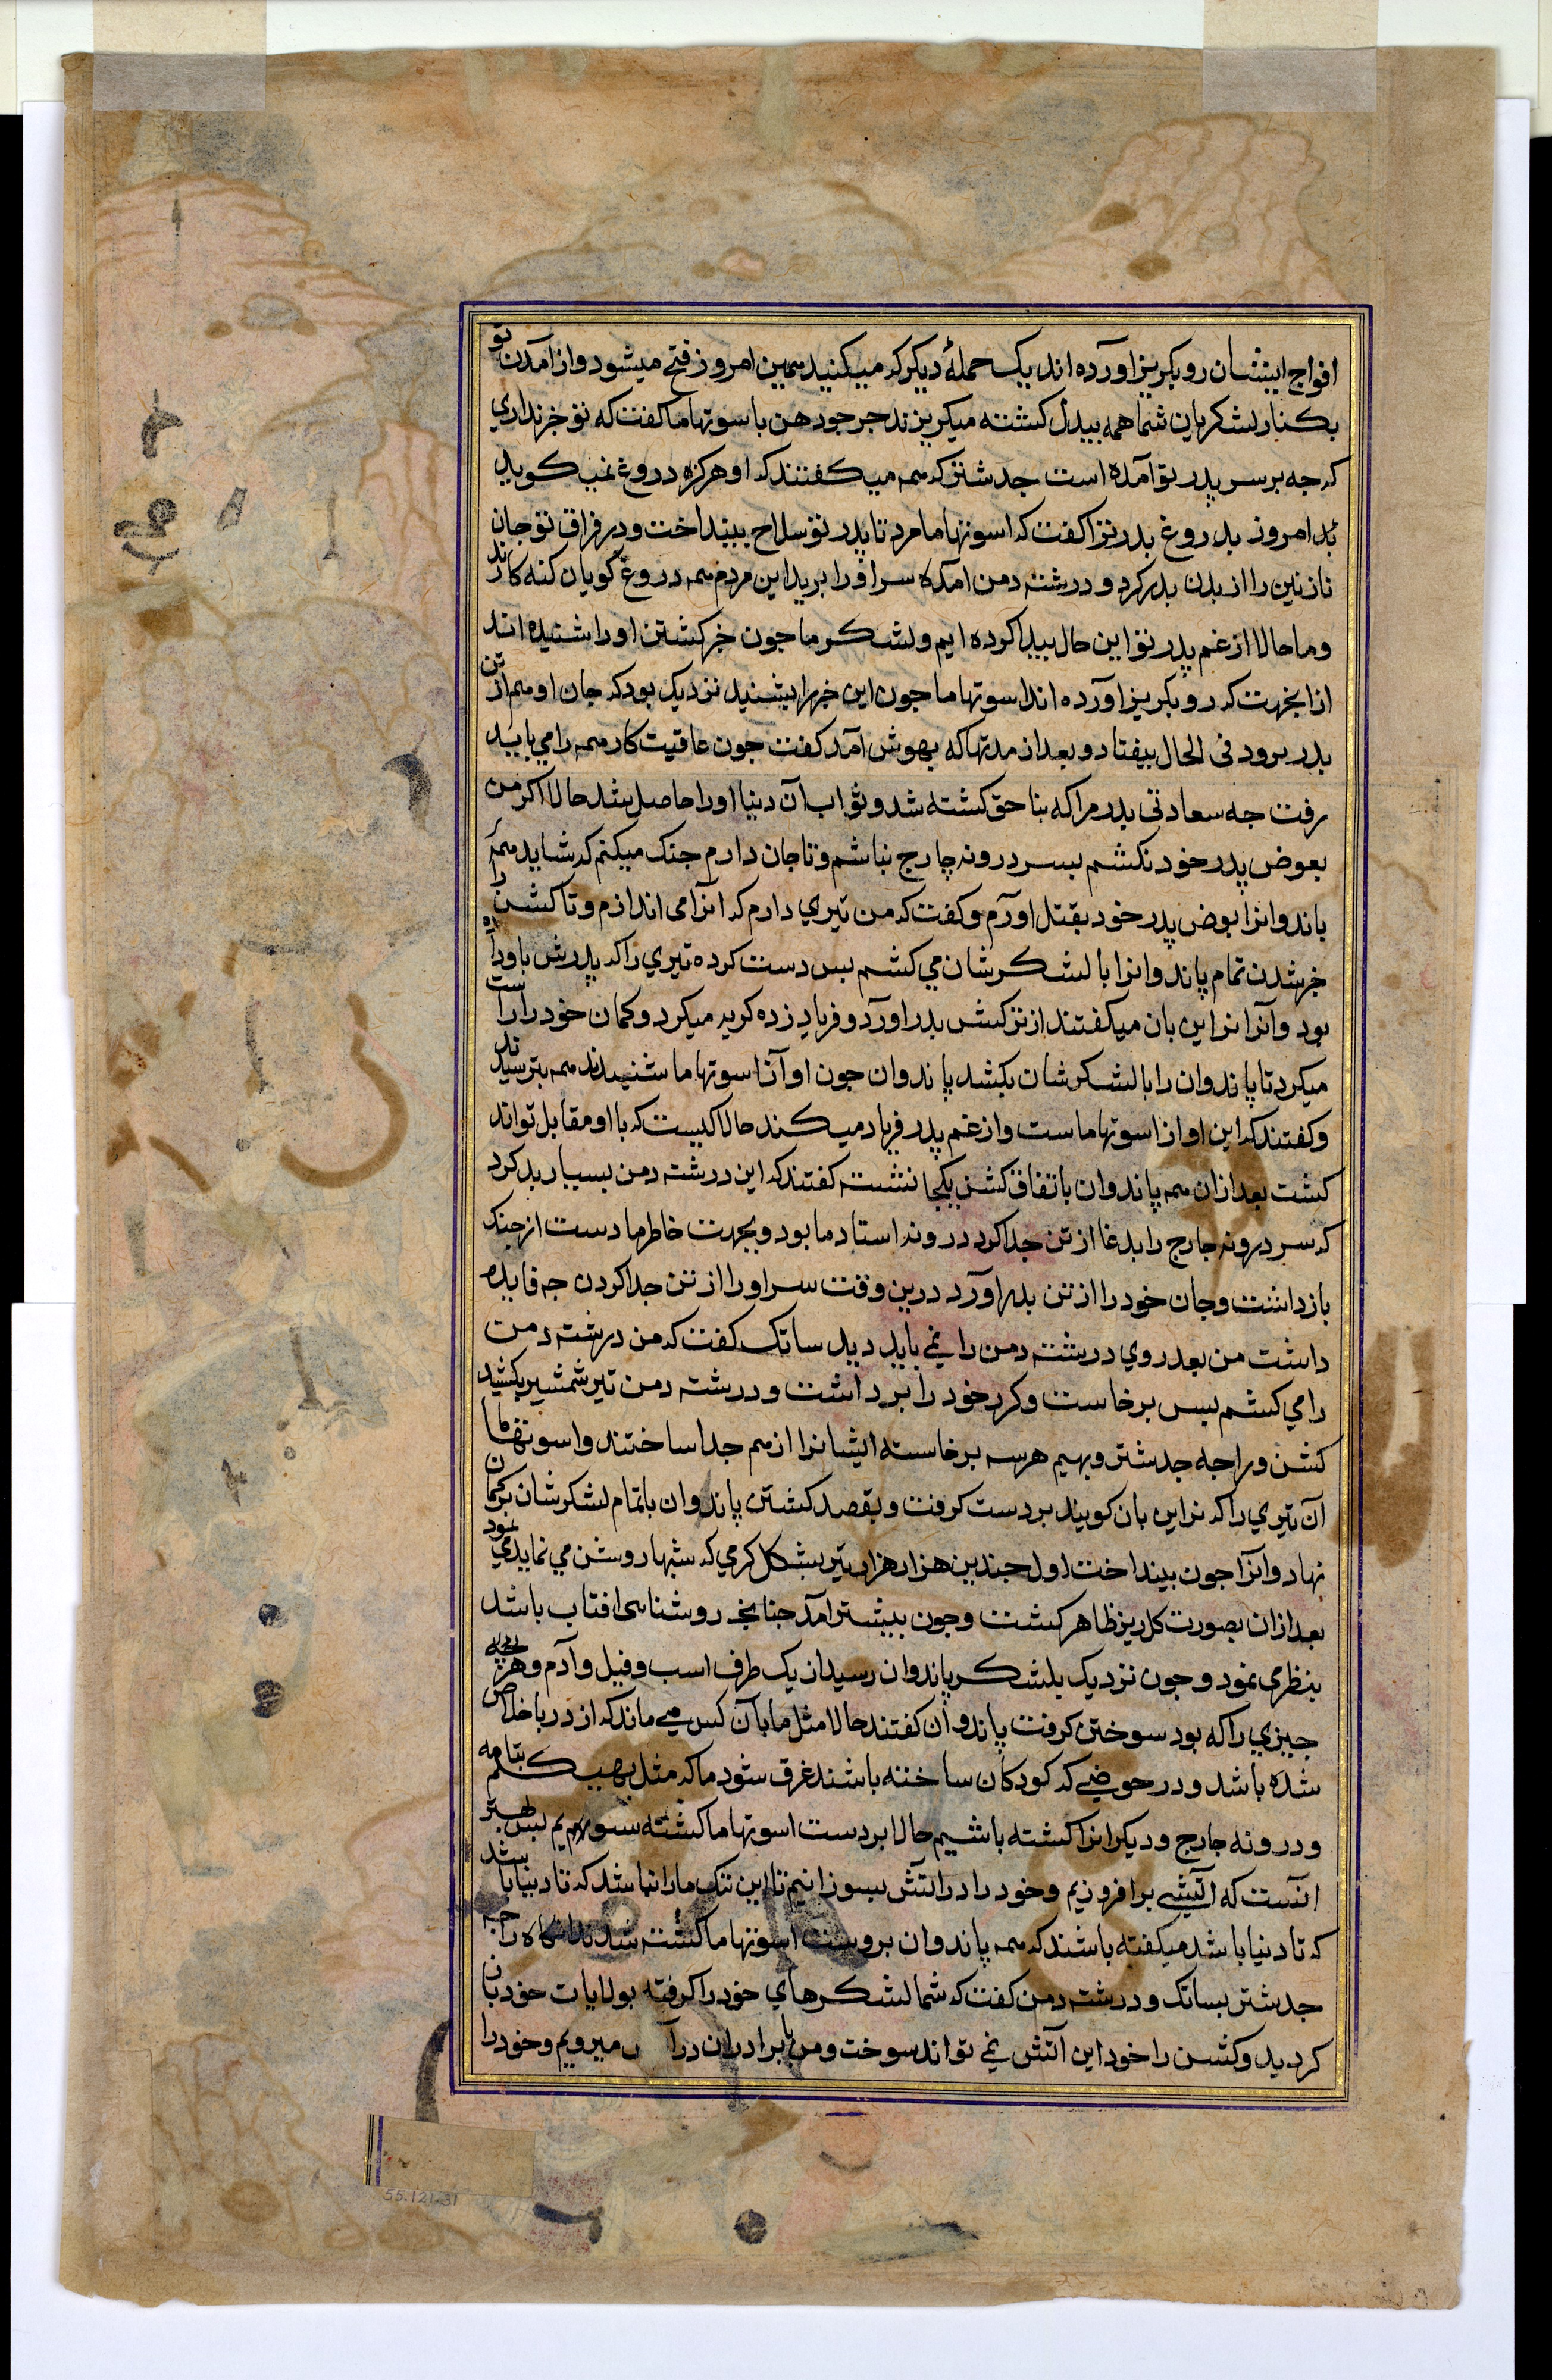 افواج ایشان رو بکریز اورده اند یک حملهٔ دیکر که میکنید همین امروز فتح میشود و از آمدن تو
بکنار لشکریان شما همه بیدل کشته میکریزند جرجودهن با سوتهاما کفت که تو خبر نداري
که جه بر سر پدر تو آمده است جدشتر که همه میکفتند که او هرکزه دروغ نمیکوید
امروز بدروغ بدر ترا کفت که اسوتهاما مرد تا پدر تو سلاح بینداخت و در فراق تو جان
نازنین را از بدن بدر کرد و درشته دمن امده سر او را برید این مردم همه دروغ کویان کنه کارند
و ما حالا از غم پدر تو این حال پیدا کرده ایم و لشکر ما جون خبر کشتن او را شنیده اند
ازانجهت که رو بکریز اورده اند اسوتهاما جون این خبر را بشنید نزدیک بود که جان او هم از تن
بدر برود فی الحال بیفتاد و بعد از مدتها که بهوش امد کفت جون عاقبت کار همه را می باید
رفت جه سعادتی پدر مرا که بناحق کشته شد و ثواب آن دنیا او را حاصل شد حالا اکر من
بعوض پدر خود نکشم پسر درونه چارج نباشم و تا جان دارم جنک میکنم که شاید همه
پاندوانرا بوض پدر خود بقتل اورم و کفت که من تیري دارم که انرا می اندازم و تا کشن را
خبر شدن تمام پاندوانرا با لشکرشان می کشم پس دست کرده تیري را که پدرش باو داده
بود و آنرا نراین بان میکفتند از ترکش بدر اورد و فریاد زده کریه میکرد و کمان خود را راست
میکرد تا پاندوان را با لشکرشان بکشد پاندوان جون اواز اسوتهاما شنیدند همه بترسیدند
و کفتند که این اواز اسوتهاماست و از غم پدر فریاد میکند حالا کیست که با او مقابل تواند
کشت بعد ازان همه پاندوان باتفاق کشن یکجا نشسته کفتند که این درشته دمن بسیار بد کرد
که سر درونه جارج را بدغا از تن جدا کرد درونه استاد ما بود و بجهت خاطر ما دست از جنک
باز داشت و جان خود را از تن بدر اورد درین وقت سر او را از تن جدا کردن جه فایده
داشت من بعد روي درشته دمن را نمی باید دید ساتک کفت که من درشته دمن
را می کشم پس برخاست و کرز خود را برداشت و درشته دمن تیر شمشیر بکشید
کشن و راجه جدشتر و بهیم هر سه برخاسته ایشانرا از هم جدا ساختند و اسوتهاما
آن تیري را که نراین بان کویند بر دست کرفت و بقصد کشتن پاندوان با تمام لشکرشان بر کمان
نهاد و انرا جون بینداخت اول جندین هزار هزار تیر بشکل کرمی که شبها روشن می نماید می نمود
بعد ازان بصورت کل ریز ظاهر کشت و جون بیشتر امد جنانجه روشنائی افتاب باشد
بنظر می نمود و جون نزدیک بلشکر پاندوان رسید از یک طرف اسب و فیل و آدم و هرچه
جیزي را که بود سوختن کرفت پاندوان کفتند حالا مثل ما بان کس می ماند که از دریا خلاص
شده باشد و در حوضی که کودکان ساخته باشند غرق شود ما که مثل بهیکم پتامه
و درونه جارج و دیکرانرا کشته باشیم حالا بر دست اسوتهاما کشته شویم پس بهتر
انست که آتشی برافروزیم و خود را در آتش بسوزانیم تا این ننک ما را نباشد که تا دنیا باشد
که تا دنیا باشد میکفته باشند که همه پاندوان بر دست اسوتهاما کشته شدند انکاه راجه
جدشتر بساتک و درشته دمن کفت که شما لشکرهاي خود را کرفته بولایات خود باز
کردید و کشن را خود این آتش نمی تواند سوخت و من با برادران در آ میرویم و خود را
55.121.31